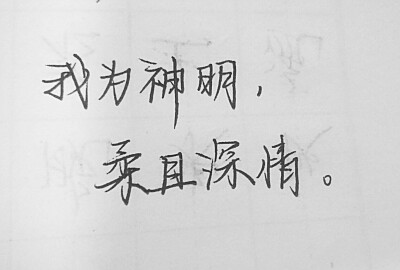 我为神明，
柔且深情。